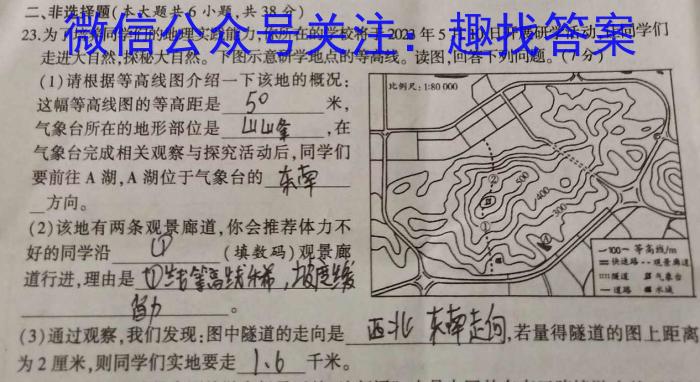 二、非选择题(本大题共6小题,共38分)
微信公众号关注:趣找答案
23.为了培养同学们的地理实践能力,你所在的学校将于2023年5月10日开展研学活动,让同学们
走进大自然,探秘大自然。下图示意研学地点的等高线。读图,回答下列问题。(7分)
(1)请根据等高线图介绍一下该地的概况:
这幅等高线图的等高距是 50 米,
气象台所在的地形部位是 山峰 ,在
气象台完成相关观察与探究活动后,同学们
要前往A湖,A湖位于气象台的 东南
方向。
(2)该地有两条观景廊道,你会推荐体力不
好的同学沿 ① (填数码)观景廊
道行进,理由是 ①等高线稀,坡度缓
省力 。
(3)通过观察,我们发现:图中隧道的走向是 西北 东南走向 ,若量得隧道的图上距离
为2厘米,则同学们实地要走 1.6 千米。
比例尺:1:80 000
②
500
400
300
①
A
—100— 等高线/m
快速路
观景廊道
隧道
气象台
道路
水域